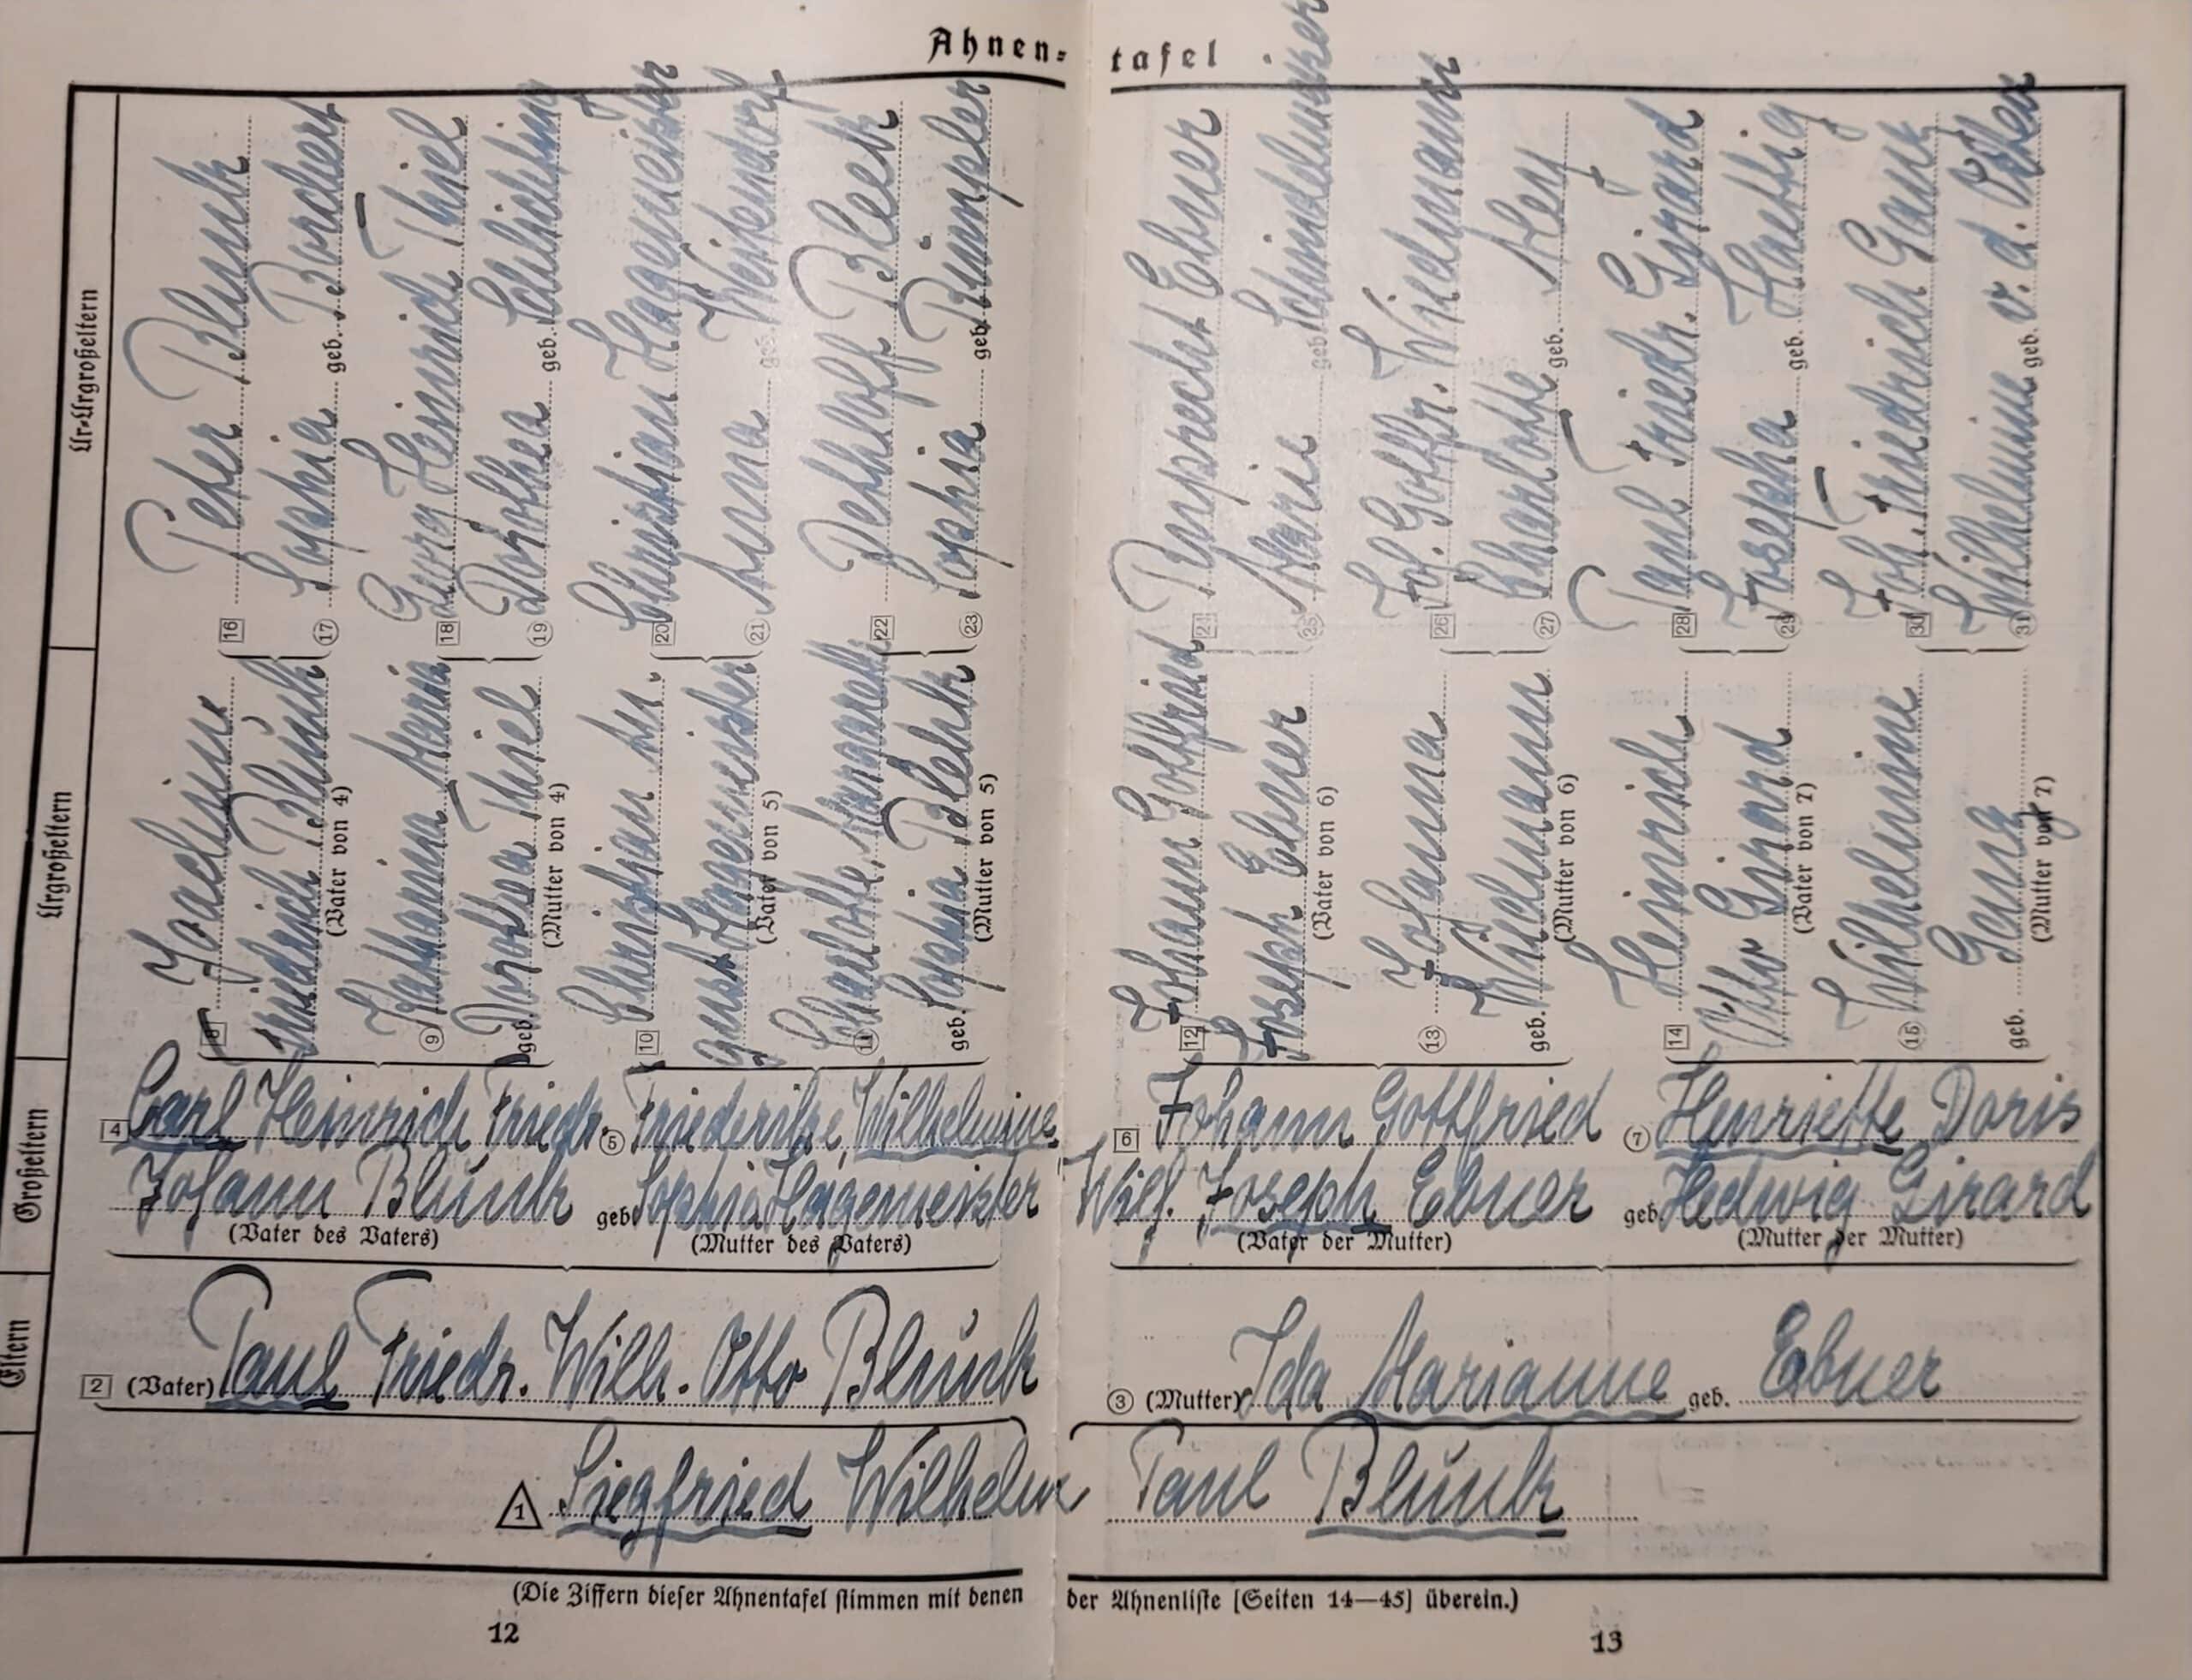 Ahnen- tafel
Ur-Urgroßeltern
16 Peter Blunk
17 Sophia geb. Borchert
18 Georg Heinrich Thiel
19 Dorothea geb. Schlichting
20 Christian Hagemeister
21 Anna geb. Weikendorf
22 Dethloff Bleek
23 Sophia geb. Rümpler
24 Ruprecht Ebner
25 Marie geb.
26 Joh. Gottfr. Wiedmann
27 Charlotte geb. Aley
28 Paul Friedr. Girard
29 Josepha geb. Haettig
30 Joh. Friedrich Gang
31 Wilhelmine geb. v. d. Osten
Urgroßeltern
8 Joachim
Friedrich Blunk
(Vater von 4)
9 Katharina Maria
Dorothea geb. Thiel
(Mutter von 4)
10 Christian
August Hagemeister
(Vater von 5)
11 Charlotte Margareth
geb. Sophia Blehk
(Mutter von 5)
12 Johann Gottfried
Joseph Ebner
(Vater von 6)
13 Johanna
geb. Wiedmann
(Mutter von 6)
14 Heinrich
Otto Girard
(Vater von 7)
15 Wilhelmine
geb. Gang
(Mutter von 7)
Großeltern
4 Carl Heinrich Friedr.
Johann Blunk
(Vater des Vaters)
5 Friederike Wilhelmine
geb. Sophia Hagemeister
(Mutter des Vaters)
6 Johann Gottfried
Wilh. Joseph Ebner
(Vater der Mutter)
7 Henriette Doris
geb. Hedwig Girard
(Mutter der Mutter)
Eltern
2 (Vater) Paul Friedr. Wilh. Otto Blunk
3 (Mutter) Ida Marianne geb. Ebner
1 Siegfried Wilhelm Paul Blunk
(Die Ziffern dieser Ahnentafel stimmen mit denen der Ahnenliste [Seiten 14—45] überein.)
12
13